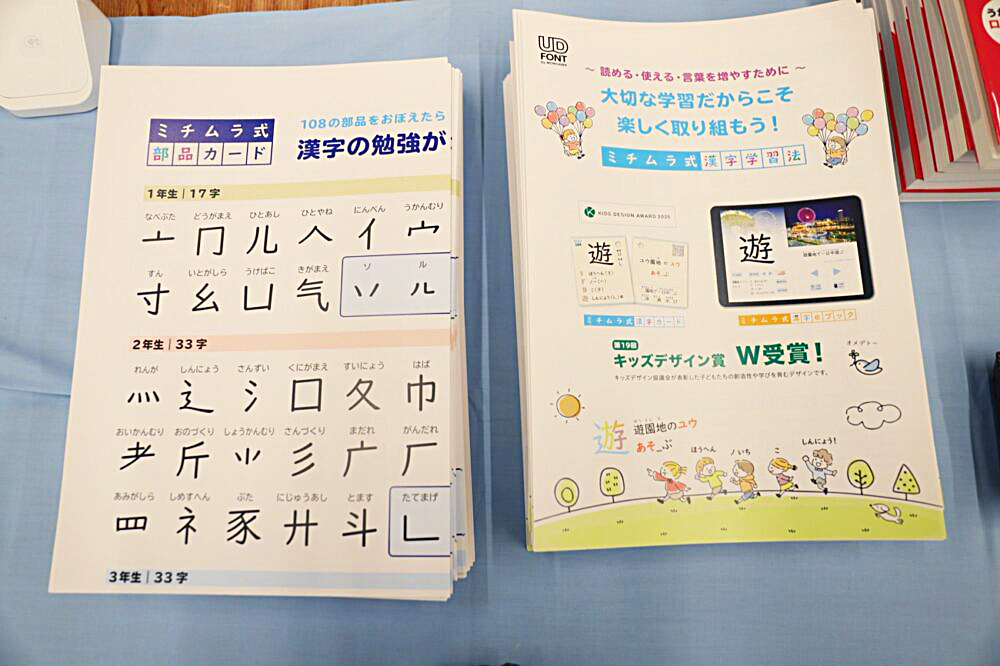 ミチムラ式
部品カード
108の部品をおぼえたら
漢字の勉強が
1年生|17字
なべぶた どうがまえ ひとあし ひとやね にんべん うかんむり
亠 冂 儿 𠆢 亻 宀
すん いとがしら うけばこ きがまえ ソ ル
寸 幺 凵 气 ソ ル
2年生|33字
れんが しんにょう さんずい くにがまえ すいにょう はば
灬 辶 氵 囗 夂 巾
おいかんむり おのづくり しょうかんむり さんづくり まだれ がんだれ
耂 斤 ⺌ 彡 广 厂
あみがしら しめすへん ぶた にじゅうあし とます たてまげ
罒 礻 豕 廾 斗 乚
3年生|33字
UD
FONT
～ 読める・使える・言葉を増やすために ～
大切な学習だからこそ
楽しく取り組もう！
ミチムラ式漢字学習法
KIDS DESIGN AWARD 2025
遊
ユウ 園地 の ユウ
あそ_ぶ
遊
ミチムラ式漢字カード
ミチムラ式漢字eブック
第19回
キッズデザイン賞 W受賞！
キッズデザイン協議会が表彰した子どもたちの創造性や学びを育むデザインです。
オメデトー
遊
遊園地のユウ
あそ_ぶ
ほうへん
ノ いち
こ
しんにょう！